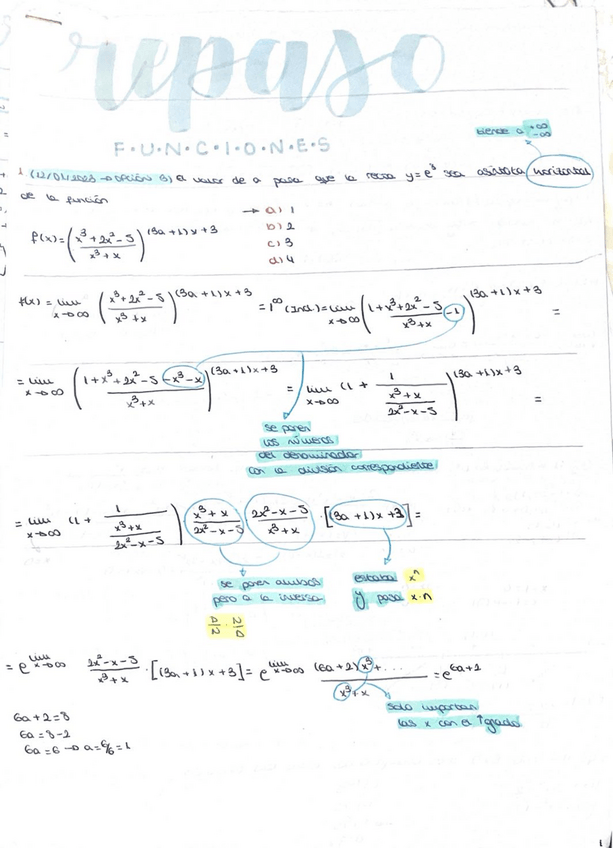 repaso
F·U·N·C·I·O·N·E·S
tiende a +∞
-∞
1. (12/01/2023 → opción B) el valor de a para que la recta y=e³ sea asíntota horizontal
de la función
→ a) 1
b) 2
c) 3
d) 4
f(x)=((x³+2x²-5)/(x³+x))^((3a+1)x+3)
f(x)= lim x→∞ ((x³+2x²-5)/(x³+x))^((3a+1)x+3) = 1^∞ (Ind.) = lim x→∞ (1+(x³+2x²-5)/(x³+x) -1)^((3a+1)x+3) =
= lim x→∞ ((1+x³+2x²-5-x³-x)/(x³+x))^((3a+1)x+3) = lim x→∞ (1+1/((x³+x)/(2x²-x-5)))^((3a+1)x+3) =
se ponen
los números
del denominador
con la división correspondiente
= lim x→∞ (1+1/((x³+x)/(2x²-x-5))) (x³+x)/(2x²-x-5) · (2x²-x-5)/(x³+x) · [(3a+1)x+3] =
se ponen ambos
pero a la inversa
D/N · N/D
estaba xⁿ
y pasa x·n
= e^lim x→∞ (2x²-x-5)/(x³+x) · [(3a+1)x+3] = e^lim x→∞ ((6a+2)x³+...)/(x³+x) = e^(6a+2)
solo importan
las x con el ↑grado
6a+2=8
6a=8-2
6a=6 → a=6/6=1